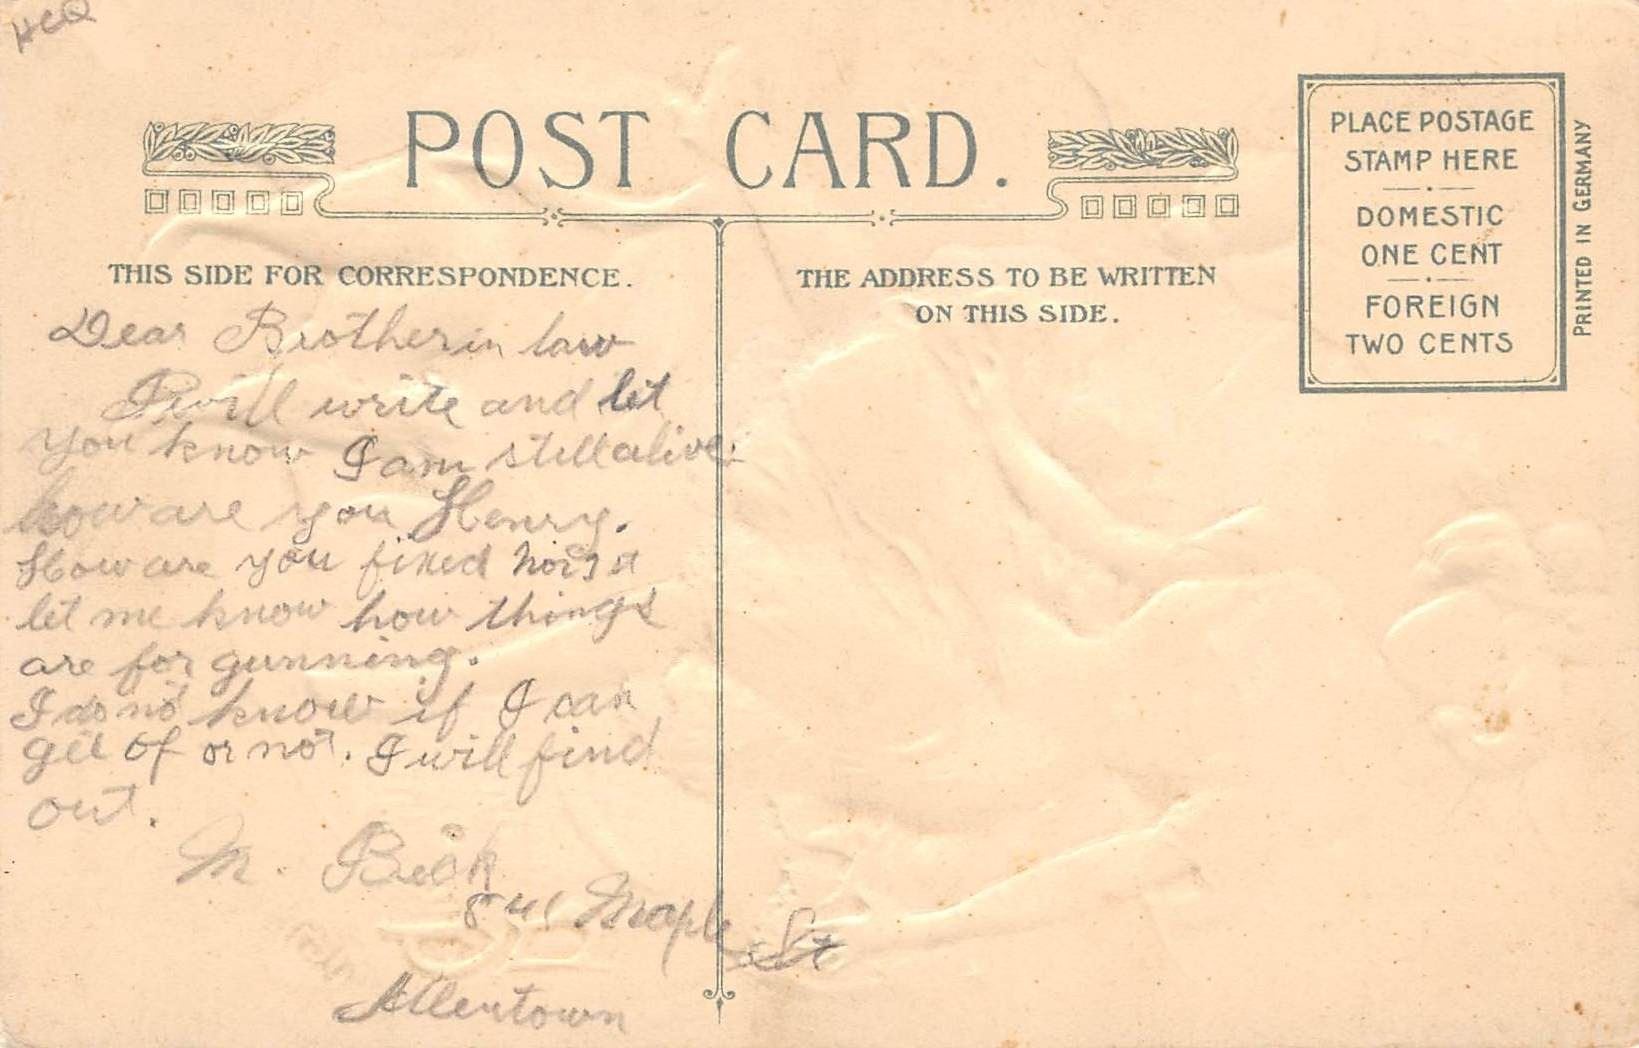 HCQ
POST CARD.
PLACE POSTAGE
STAMP HERE
DOMESTIC
ONE CENT
FOREIGN
TWO CENTS
PRINTED IN GERMANY
THIS SIDE FOR CORRESPONDENCE.
THE ADDRESS TO BE WRITTEN
ON THIS SIDE.
Dear Brother in law
I will write and let
you know I am still alive.
how are you Henry.
How are you fixed
let me know how things
are for gunning.
I do no know if I can
get of or not. I will find
out.
M.
841 Maple St
Allentown